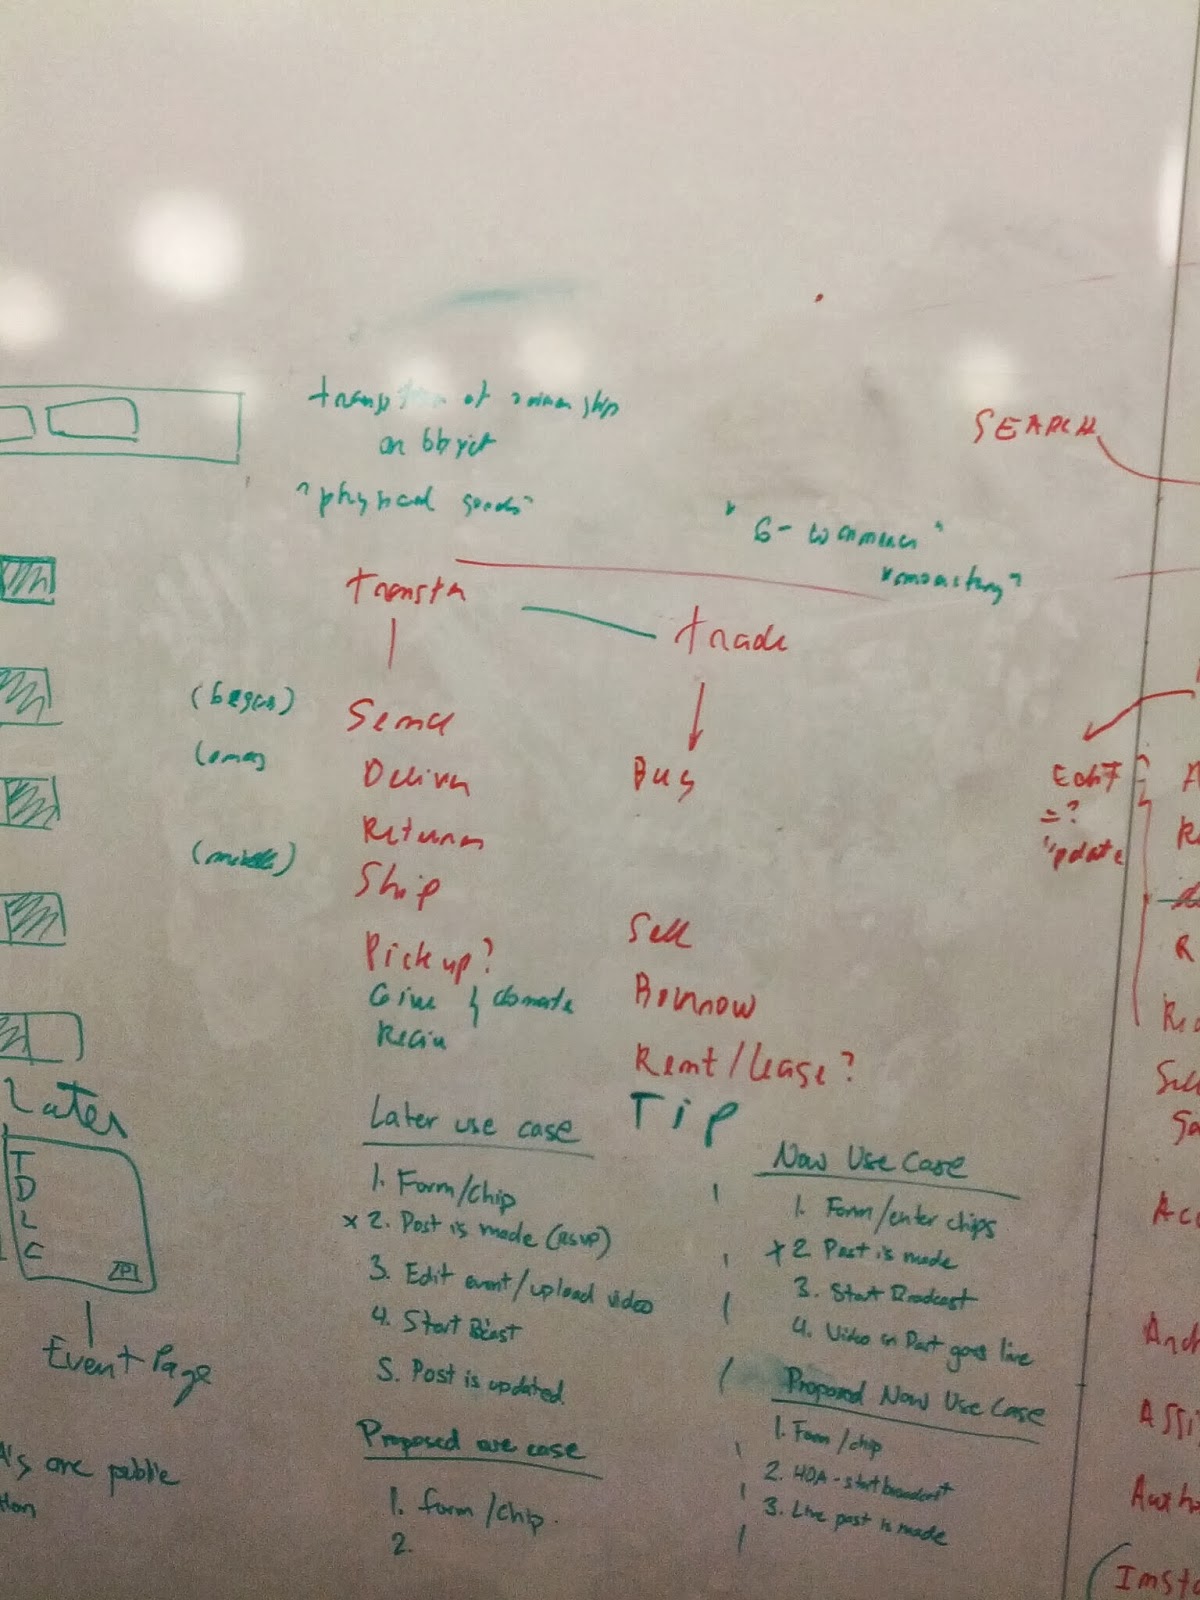 an object
"physical goods"
SEARCH
trade
Send
Deliver
Return
Buy
Edit
= ?
update
Ship
Pick up?
Give } donate
Sell
Borrow
Rent/Lease?
Tip
Later
T
D
L
C
Event Page
A's are public
Later use case
1. Form/chip
x 2. Post is made (RSVP)
3. Edit event/upload video
4. Start Bcast
5. Post is updated
Proposed use case
1. Form/chip.
2.
Now Use Case
1. Form/enter chips
x 2. Post is made
3. Start Broadcast
4. Video on Post goes live
Proposed Now Use Case
1. Form/chip
2. HOA - start broadcast
3. Live post is made